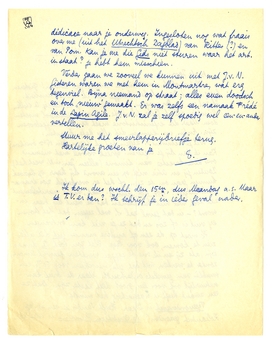 dédicace naar je onderweg. Ingesloten nog wat fraais
over me (uit het Utrechtsch Dagblad) van Ritter (!) en
van Pom. Kan je me die Gids niet sturen waar het art.
in staat? je hebt hem misschien.
Verder gaan we zooveel we kunnen uit met J.v.N.
Gisteren waren we met hem in Montmartre, wat erg
tegenviel. Bijna niemand op straat, alles even doodsch
en toch "nieuw" gemaakt. Er was zelfs een namaak Frédé
in de Lapin Agile. J.v.N. zal je zelf spoedig wel een en ander
vertellen.
Stuur me het smeerlapperijbriefje terug.
Hartelijke groeten van je
E.
Ik kom dus wschl. den 15en, dus Maandag a.s. Maar
is T.V. er ban? Ik schrijf je in ieder geval nader.